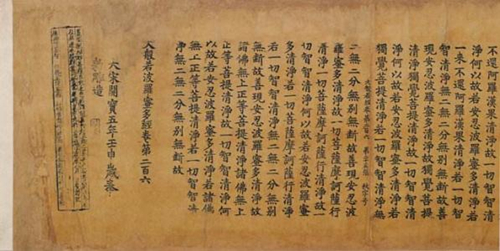 不還阿羅漢果清淨故一切智智清
淨何以故若安忍波羅蜜多清淨若
一來不還阿羅漢果清淨若一切智
智清淨無二無二分無別無斷故善
現安忍波羅蜜多清淨故獨覺菩提
清淨獨覺菩提清淨故一切智智清
淨何以故若安忍波羅蜜多清淨若
獨覺菩提清淨若一切智智清淨無
二無二分無別無斷故善現安忍波
羅蜜多清淨故一切菩薩摩訶薩行
清淨一切菩薩摩訶薩行清淨故一
切智智清淨何以故若安忍波羅蜜
多清淨若一切菩薩摩訶薩行清淨
若一切智智清淨無二無二分無別
無斷故善現安忍波羅蜜多清淨故
諸佛無上正等菩提清淨諸佛無上
正等菩提清淨故一切智智清淨何
以故若安忍波羅蜜多清淨若諸佛
無上正等菩提清淨若一切智智清
淨無二無二分無別無斷故
大般若波羅蜜多經卷第二百六
大宋開寶五年壬申歲奉
敕雕造